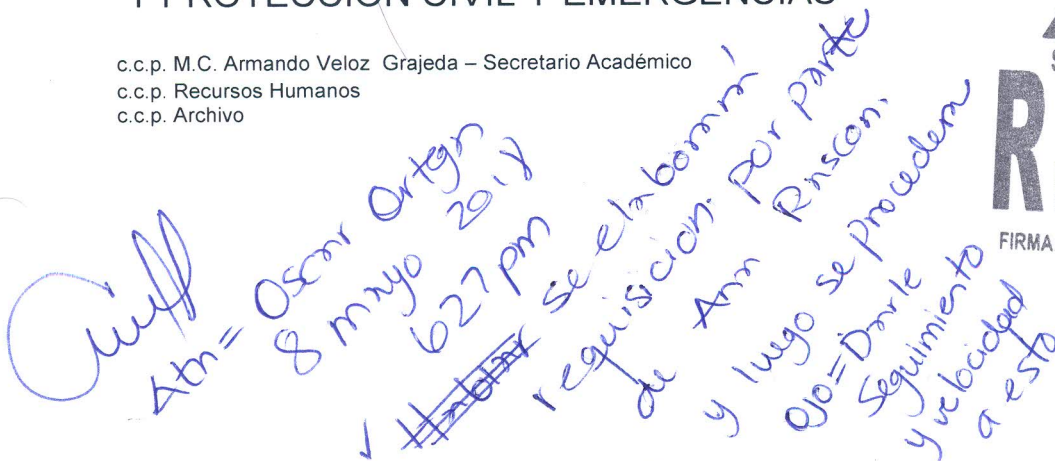 Y PROTECCIÓN CIVIL Y EMERGENCIAS
c.c.p. M.C. Armando Veloz Grajeda – Secretario Académico
c.c.p. Recursos Humanos
c.c.p. Archivo
R
FIRMA
Atn= Oscar Ortega
8 mayo 2018
627 pm
Hablar se elaborará
requisicion. por parte
de Ana Rascon.
y luego se procedera
OJO= Darle
Seguimiento
y velocidad
a esto